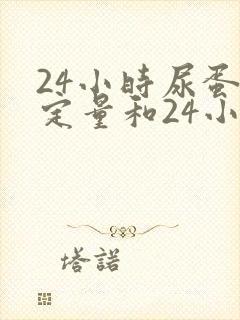 24小時尿蛋
定量和24小
塔諾